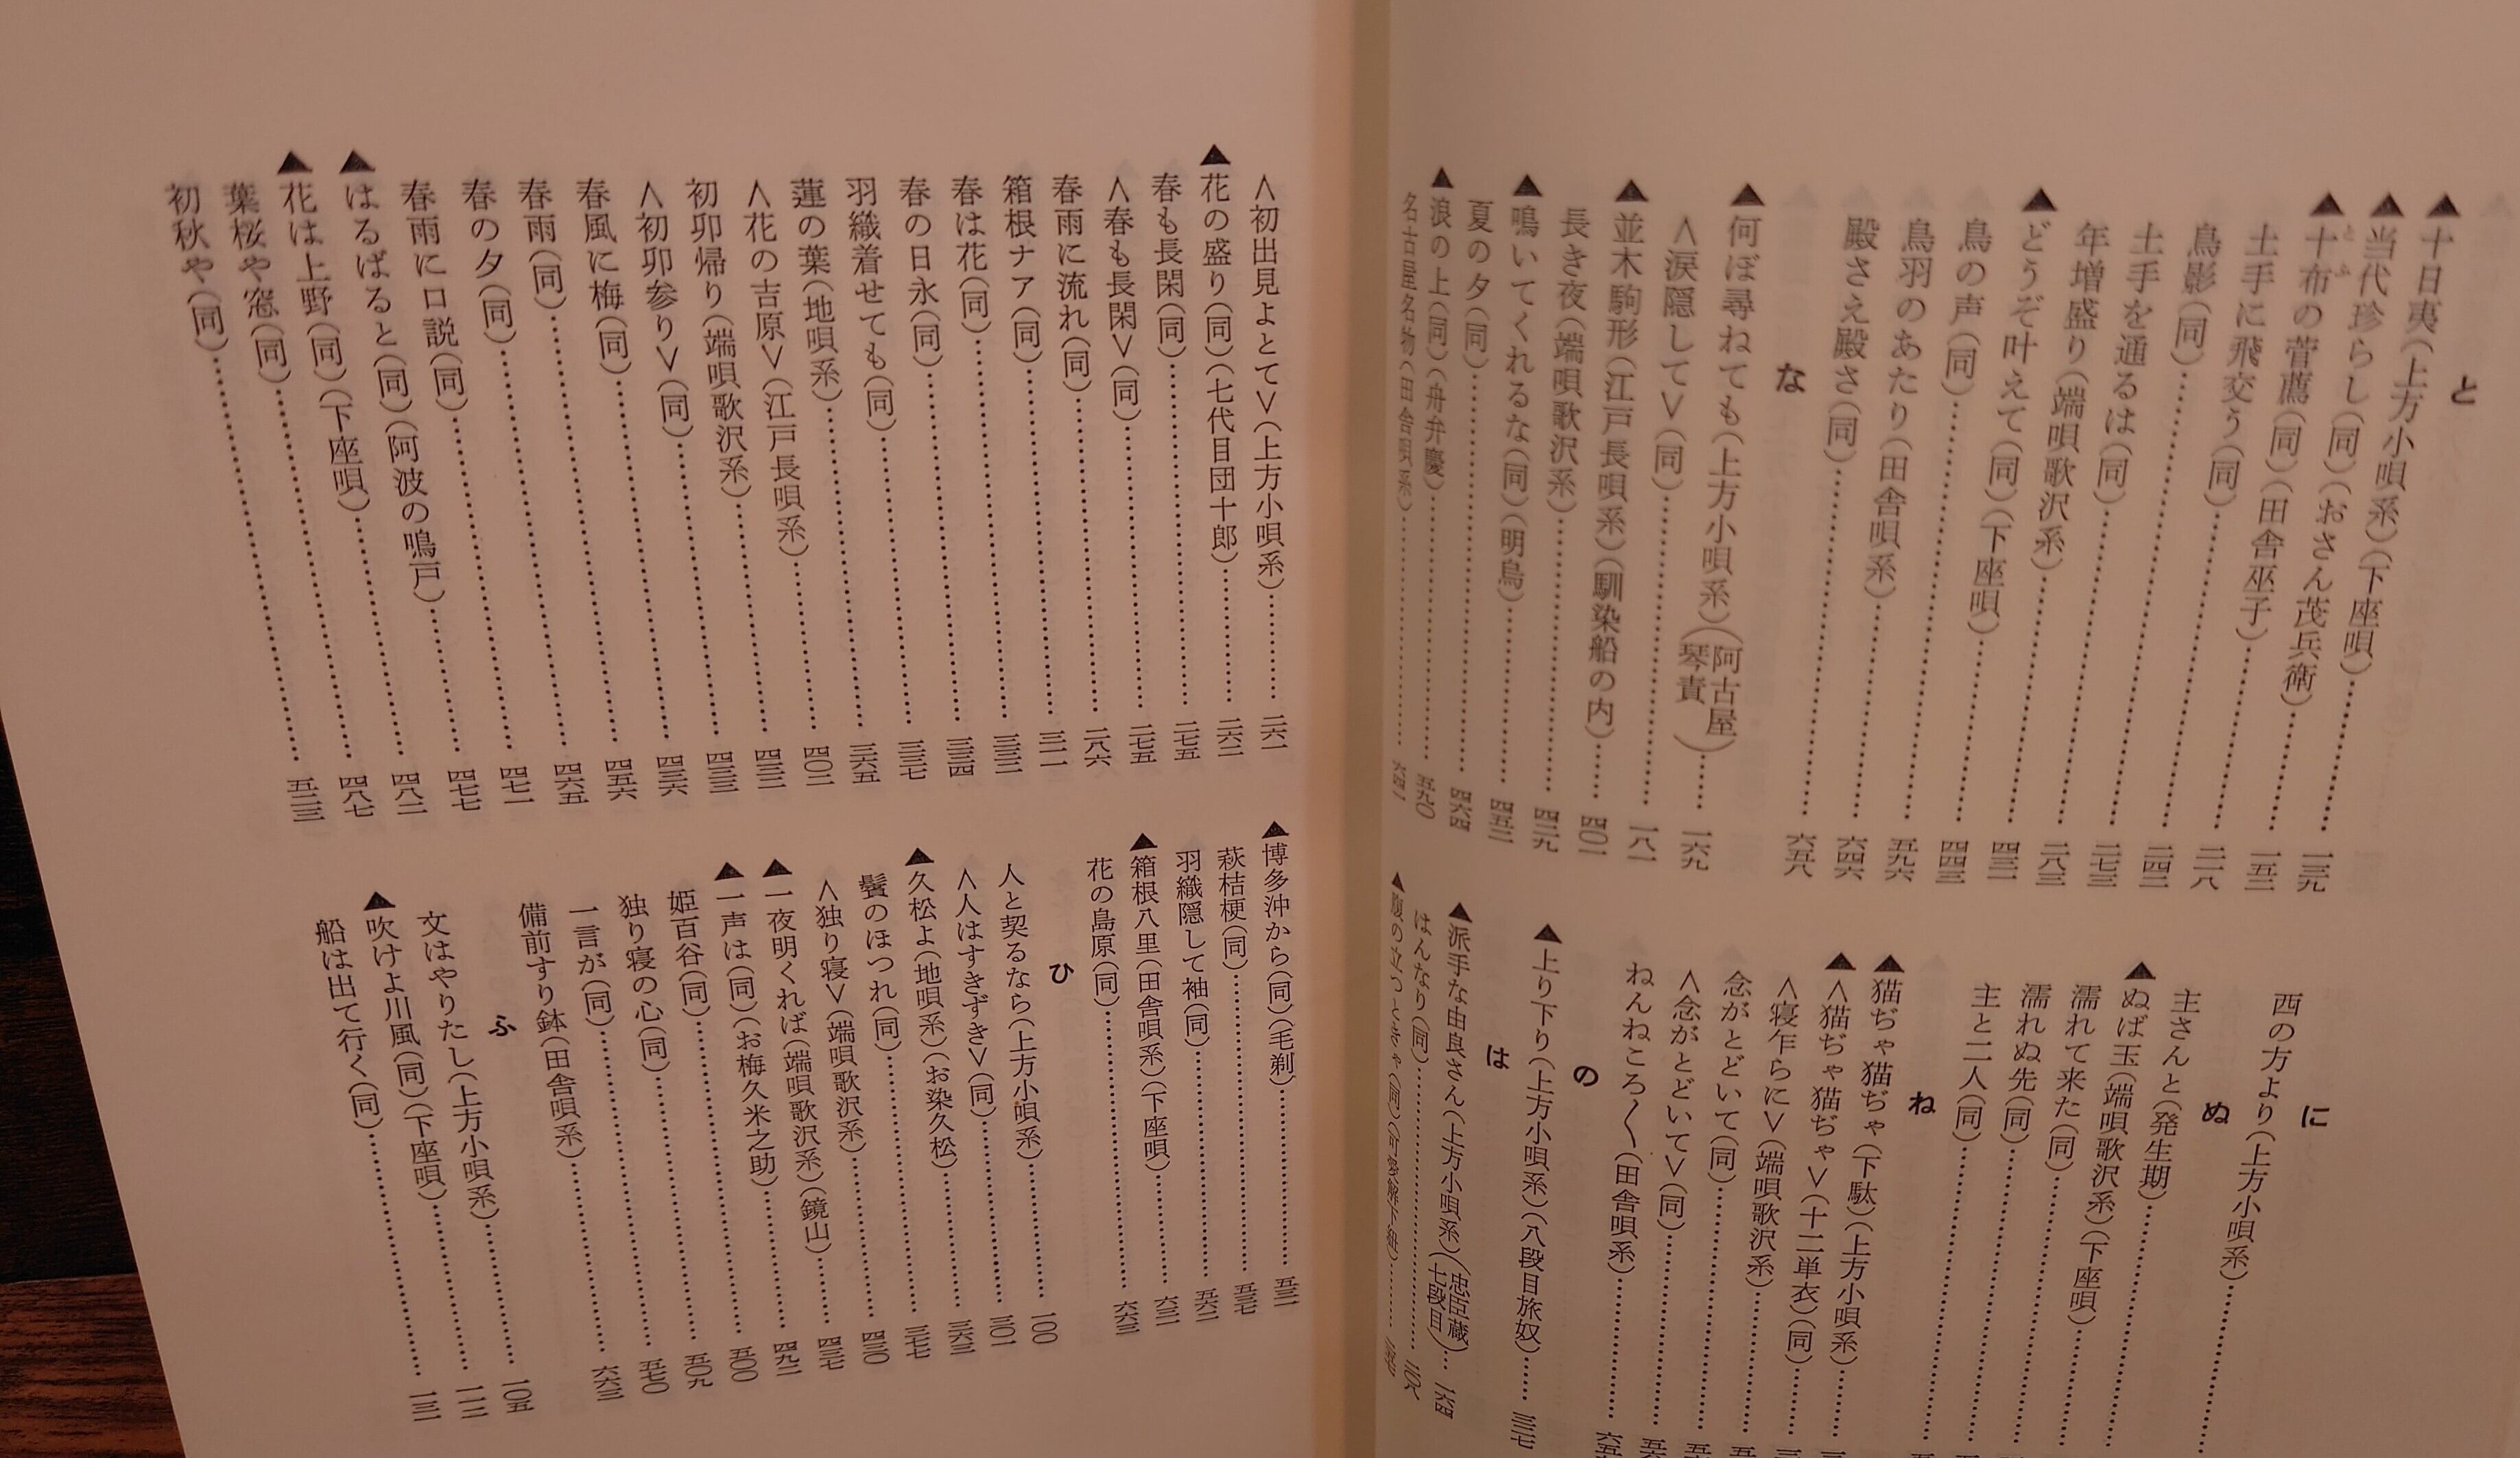 と
▲十日夷(上方小唄系)(下座唄)……一三九
▲当代珍らし(同)(おさん茂兵衛)……一五三
▲十布の菅薦(同)(田舎巫子)……二一八
土手に飛交う(同)……二四二
鳥影(同)……二七三
土手を通るは(同)……二八三
年増盛り(端唄歌沢系)……四三二
▲どうぞ叶えて(同)(下座唄)……四四三
鳥の声(同)……五九六
鳥羽のあたり(田舎唄系)……六四六
殿さえ殿さ(同)……六五八
な
▲何ぼ尋ねても(上方小唄系)(阿古屋琴責)……一六九
〈涙隠して〉(同)……一八一
▲並木駒形(江戸長唄系)(馴染船の内)……四〇一
長き夜(端唄歌沢系)……四二九
▲鳴いてくれるな(同)(明烏)……四五二
夏の夕(同)……四六四
▲浪の上(同)(舟弁慶)……五九〇
名古屋名物(田舎唄系)……六四一
に
西の方より(上方小唄系)……
ぬ
主さんと(発生期)……
▲ぬば玉(端唄歌沢系)(下座唄)……
濡れて来た(同)……
濡れぬ先(同)……
主と二人(同)……
ね
▲猫ぢゃ猫ぢゃ(下駄)(上方小唄系)……
▲〈猫ぢゃ猫ぢゃ〉(十二単衣)(同)……
〈寝乍らに〉(端唄歌沢系)……
念がとどいて(同)……
〈念がとどいて〉(同)……
ねんねころ〱(田舎唄系)……
の
▲上り下り(上方小唄系)(八段目旅奴)……三三七
は
▲派手な由良さん(上方小唄系)(忠臣蔵七段目)…一六四
はんなり(同)……
▲腹の立つときゃ(同)
〈初出見よとて〉(上方小唄系)……二六一
▲花の盛り(同)(七代目団十郎)……二六二
春も長閑(同)……二七五
〈春も長閑〉(同)……二七五
春雨に流れ(同)……二八六
箱根ナア(同)……三一一
春は花(同)……三三三
春の日永(同)……三三四
羽織着せても(同)……三三七
蓮の葉(地唄系)……三六五
〈花の吉原〉(江戸長唄系)……四〇二
初卯帰り(端唄歌沢系)……四三二
〈初卯参り〉(同)……四三三
春風に梅(同)……四三六
春雨(同)……四五六
春の夕(同)……四六五
春雨に口説(同)……四七一
▲はるばると(同)(阿波の鳴戸)……四七七
▲花は上野(同)(下座唄)……四八二
葉桜や窓(同)……四八七
初秋や(同)……五一三
▲博多沖から(同)(毛剃)……五三一
萩桔梗(同)……五三七
羽織隠して袖(同)……五六二
▲箱根八里(田舎唄系)(下座唄)……六三一
花の島原(同)……六六三
ひ
人と契るなら(上方小唄系)……一〇〇
〈人はすきずき〉(同)……三〇一
▲久松よ(地唄系)(お染久松)……三六三
鬢のほつれ(同)……三七七
〈独り寝〉(端唄歌沢系)……四三〇
▲一夜明くれば(端唄歌沢系)(鏡山)……四三七
▲一声は(同)(お梅久米之助)……四九二
姫百谷(同)……五〇〇
独り寝の心(同)……五〇九
一言が(同)……五七〇
備前すり鉢(田舎唄系)……六六三
ふ
文はやりたし(上方小唄系)……一〇五
▲吹けよ川風(同)(下座唄)……一一二
船は出て行く(同)……一三一